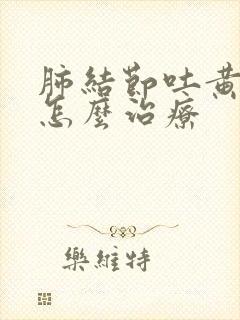 肺結節吐黃
怎麼治療
樂維特